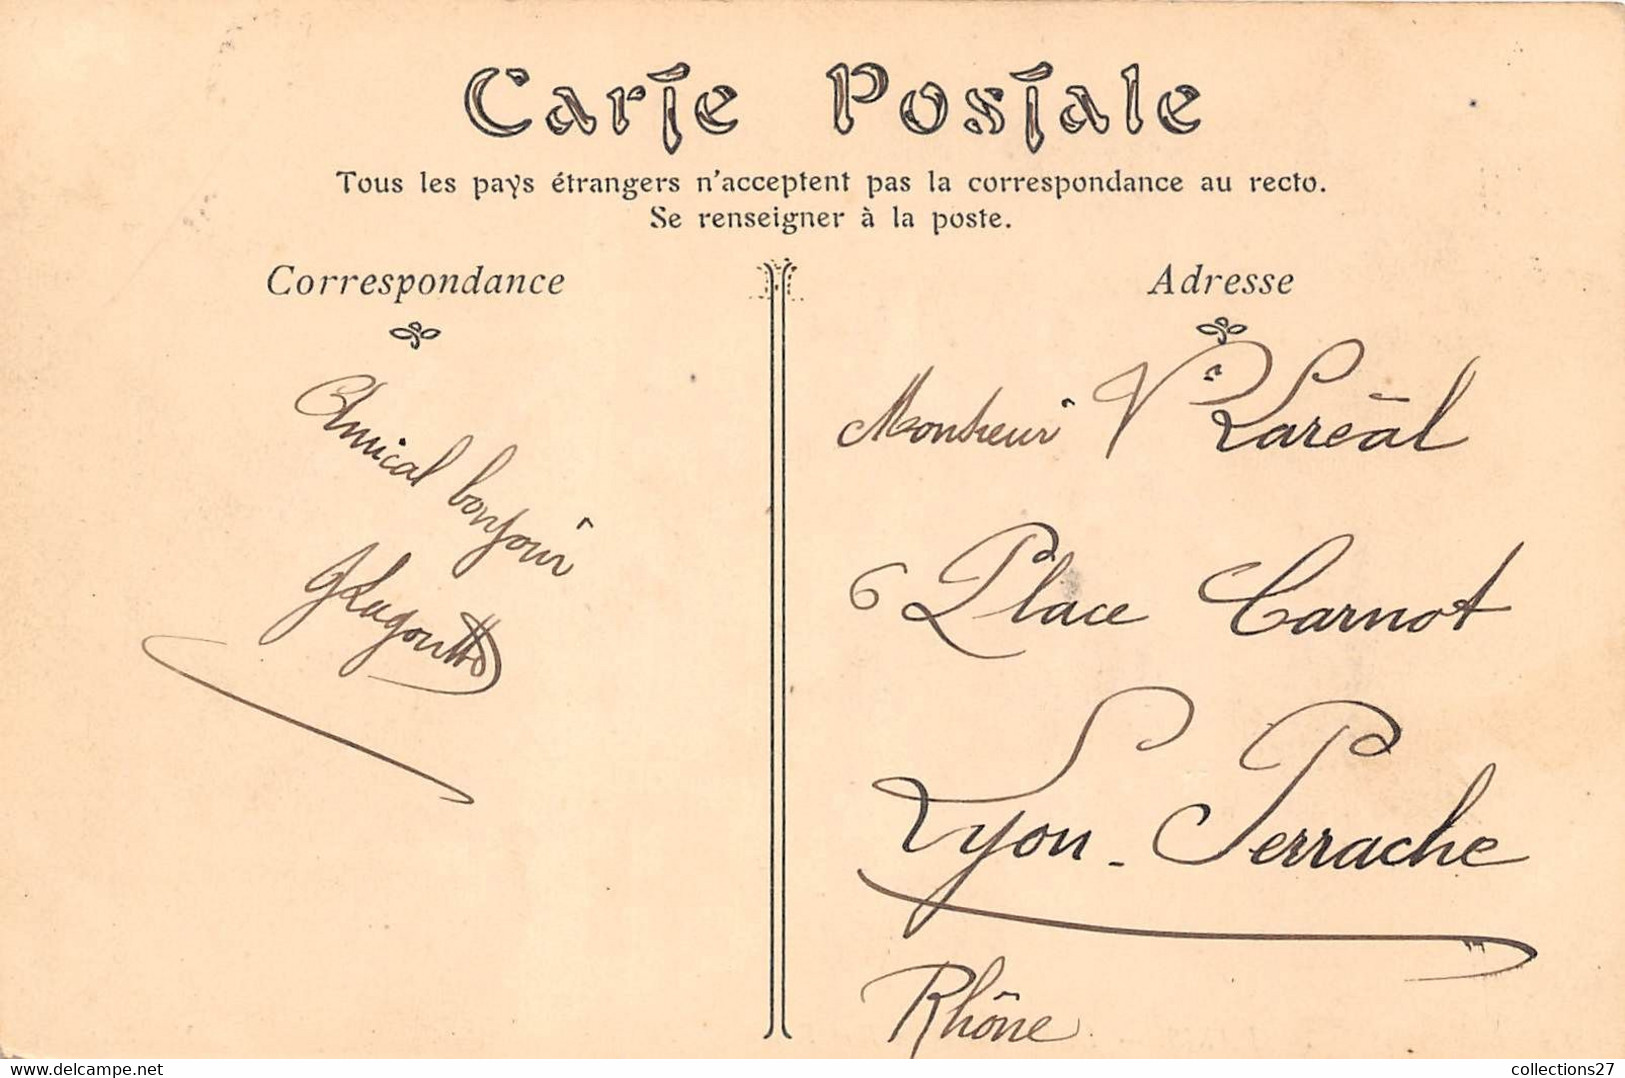 Carte Postale
Tous les pays étrangers n'acceptent pas la correspondance au recto.
Se renseigner à la poste.
Correspondance
Amical bonjour
Adresse
Monsieur V Laréal
6 Place Carnot
Lyon-Perrache
Rhône
delcampe.net
collections27